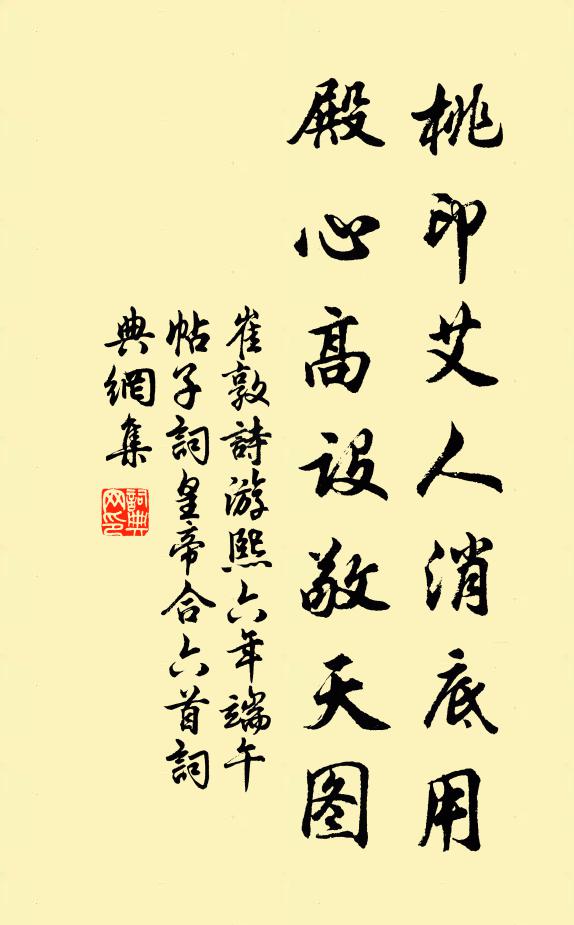 桃印艾人消底用
殿心高设敬天图
崔敦詩游熙六年端午
帖子詞皇帝合六首詞
典網集
詞典
网印